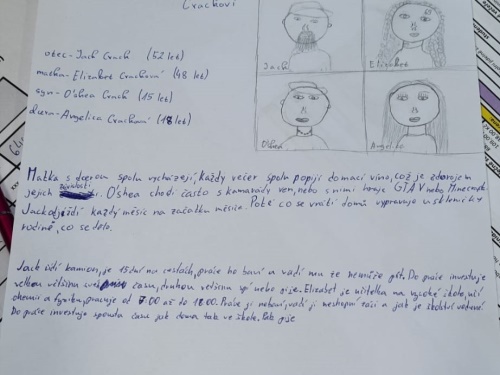 Crachovi
otec-Jach Crach (52 let)
matka-Elizabet Crachová (48 let)
syn- O'shea Crach (15 let)
dcera-Angelica Crachová (18 let)
Jach
Elizabet
O'shea
Matka s dcerou spolu vycházejí, Každý večer spolu popíjí domácí víno, což je zdrojem
jejich závislosti. O'shea chodí často s kamarády ven, nebo s nimi hraje GTA V nebo Minecraft.
Jack odjíždí každý měsíc na začátku měsíce. Poté co se vrátí domů vypravuje u skleničky
rodině, co se dělo.
Jach řídí kamion, je 15 dní na cestách, práce ho baví a vadí mu že nemůže pít. Do práce investuje
velkou většinu času, druhou většinu spí nebo pije. Elizabet je učitelka na vysoké škole, učí
chemii a fyziku, pracuje od 7:00 až do 18:00. Práce ji nebaví, vadí jí neschopní žáci a jak je školství vedené.
Do práce investuje spoustu času jak doma tak ve škole. Pak pije